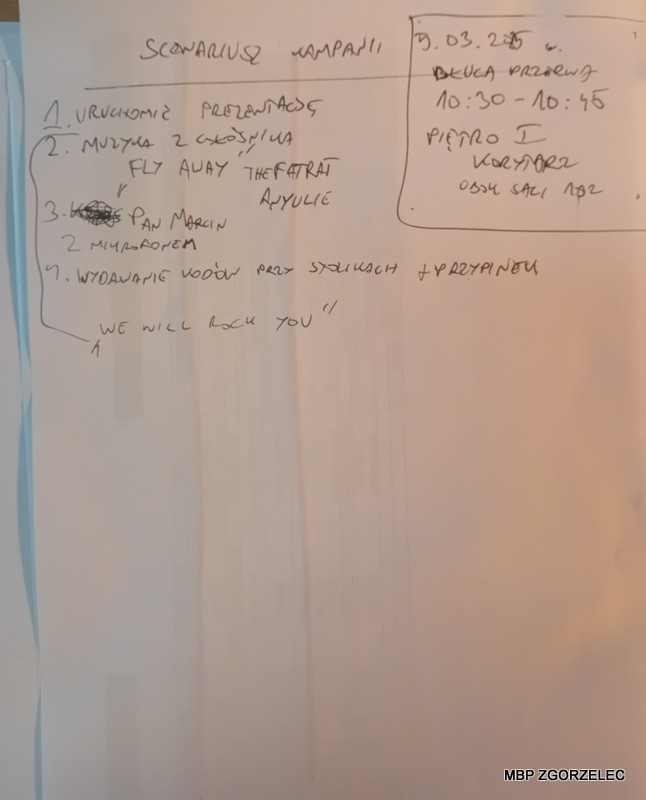 SCENARIUSZ KAMPANII
1. URUCHOMIĆ PREZENTACJĘ
2. MUZYKA Z GŁOŚNIKA
FLY AWAY" THEFATRAT
ANYULIE
3. PAN MARCIN
Z MIKROFONEM
4. WYDAWANIE KODÓW PRZY STOLIKACH + PRZYPINEK
WE WILL ROCK YOU"
9.03.2 r.
DŁUGA PRZERWA
10:30 - 10:45
PIĘTRO I
KORYTARZ
OBOK SALI 102
MBP ZGORZELEC